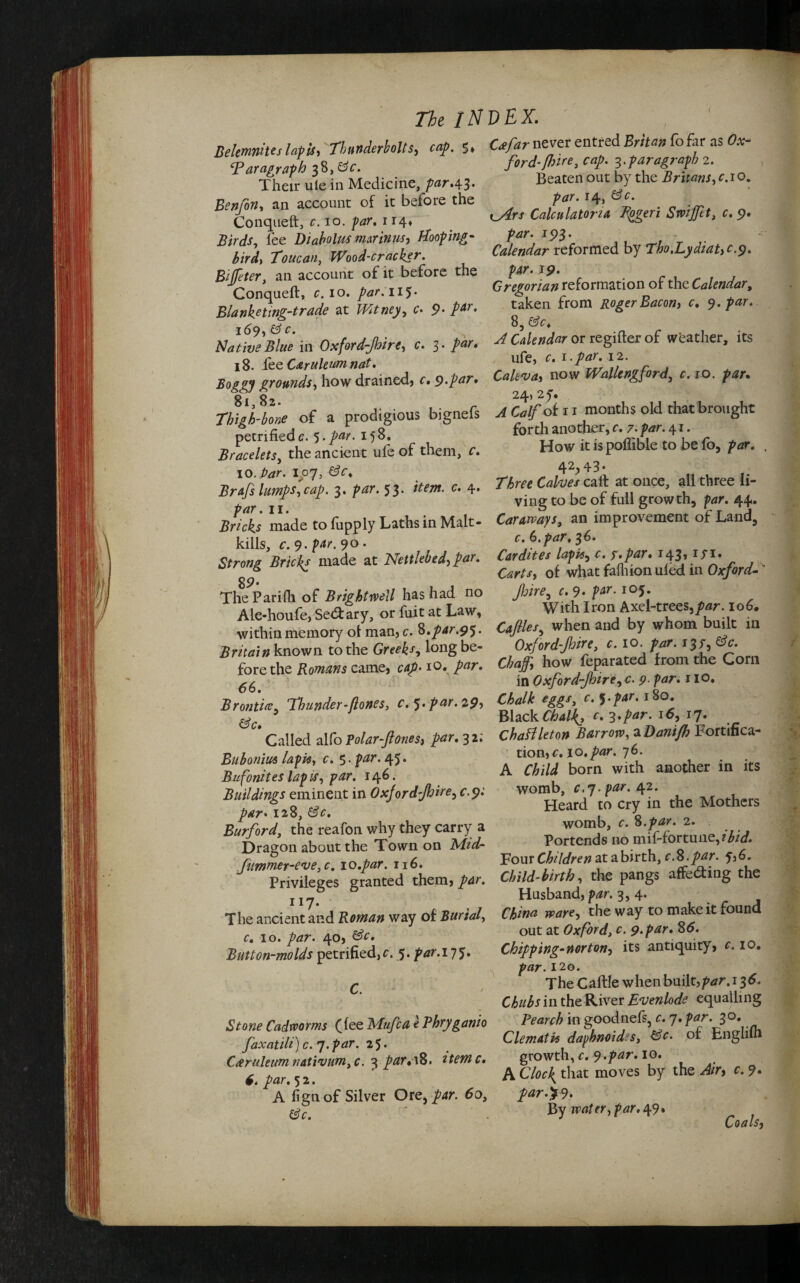 The INDEX.
Belemnites lapis, Thunderbolts, cap. 5.
Paragraph 38, &c.
Their use in Medicine, par.43.
Benson, an account of it before the
Conquest, c. 10. par. 114.
Birds, see Diabolus marinus, Hooping-
bird, Toucan, Wood-cracker.
Bisseter, an account of it before the
Conquest, c. 10. par. 115.
Blanketing-trade at Witney, c. 9. par.
169, &c.
Native Blue in Oxford-shire, c. 3. par.
18. see Cæruleum nat.
Boggy grounds, how drained, c. 9.par.
81, 82.
Thigh-bone of a prodigious bigness
petrified c. 5. par. 158.
Bracelets, the ancient use of them, c.
10. par. 107, &c.
Brass lumps, cap. 3. par. 53. item. c. 4.
par. 11.
Bricks made to supply Laths in Malt-
kills, c. 9. par. 90.
Strong Bricks made at Nettlebed, par.
89.
The Parish of Brightwell has had no
Ale-house, Sectary, or suit at Law,
within memory of man, c. 8.par.95.
Britain known to the Greeks, long be-
fore the Romans came, cap. 10. par.
66.
Brontiæ, Thunder-stones, c. 5. par. 29,
&c.
Called also Polar-stones, par. 32.
Bubonius lapis, c. 5. par. 45.
Bufonites lapis, par. 146.
Buildings eminent in Oxford-shire, c.9.
par. 128, &c.
Burford, the reason why they carry a
Dragon about the Town on Mid-
summer-eve, c. 10.par. 116.
Privileges granted them, par.
117.
The ancient and Roman way of Burial,
c. 10. par. 40, &c.
Button-molds petrified, c. 5. par.175.
C.
Stone Cadworms (see Musca è Phryganio
saxatili) c. 7.par. 25.
Cæruleum nativum, c. 3 par.18. item c.
6. par. 52.
A sign of Silver Ore, par. 60,
&c.
Cæsar never entred Britan so far as Ox-
ford-shire, cap. 3.paragraph 2.
Beaten out by the Britans, c.10.
par. 14, &c.
Ars Calculatoria Rogeri Swisset, c. 9.
par. 193.
Calendar reformed by Tho.Lydiat, c.9.
par. 19.
Gregorian reformation of the Calendar,
taken from Roger Bacon, c. 9. par.
8, &c.
A Calendar or register of weather, its
use, c. 1.par. 12.
Caleva, now Wallengford, c. 10. par.
24, 25.
A Calf of 11 months old that brought
forth another, c. 7. par. 41.
How it is possible to be so, par.
42, 43.
Three Calves cast at once, all three li-
ving to be of full growth, par. 44.
Caraways, an improvement of Land,
c. 6.par. 36.
Cardites lapis, c. 5.par. 143, 151.
Carts, of what fashion used in Oxford-
shire, c. 9. par. 105.
With Iron Axel-trees, par. 106.
Castles, when and by whom built in
Oxford-shire, c. 10. par. 135, &c.
Chaff, how separated from the Corn
in Oxford-shire, c. 9. par. 110.
Chalk eggs, c. 5.par. 180.
Black Chalk, c. 3.par. 16, 17.
Chastleton Barrow, a Danish Fortifica-
tion, c. 10.par. 76.
A Child born with another in its
womb, c.7. par. 42.
Heard to cry in the Mothers
womb, c. 8.par. 2.
Portends no mis-fortune, ibid.
Four Children at a birth, c.8.par. 5,6.
Child-birth, the pangs affecting the
Husband, par. 3, 4.
China ware, the way to make it found
out at Oxford, c. 9.par. 86.
Chipping-norton, its antiquity, c. 10.
par. 120.
The Castle when built, par.136.
Chubs in the River Evenlode equalling
Pearch in goodness, c. 7.par. 30.
Clematis daphnoides, &c. of English
growth, c. 9.par. 10.
A Clock that moves by the Air, c. 9.
par.39.
By water, par. 49.
Coals,